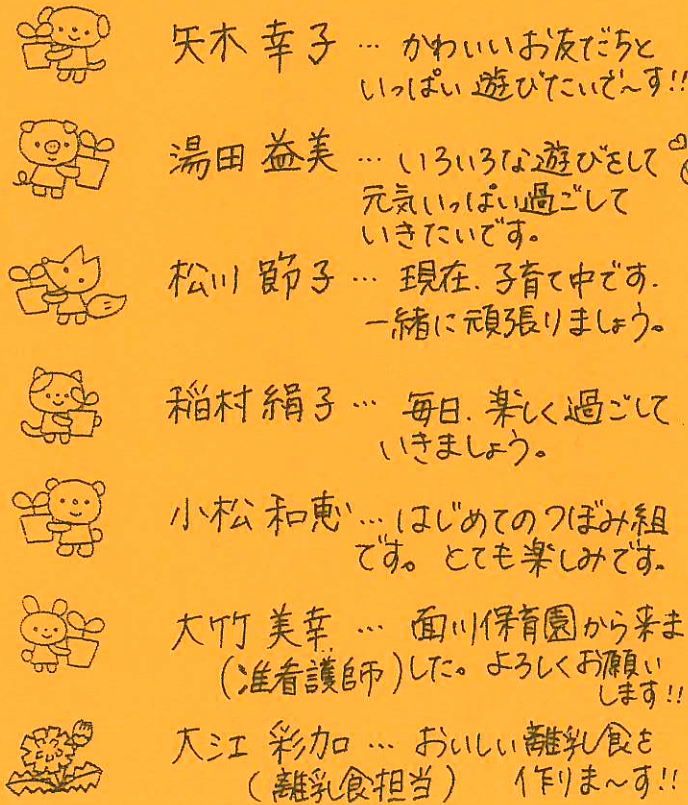 矢木 幸子 … かわいいお友だちと
いっぱい 遊びたいで〜す!!
湯田 益美 … いろいろな遊びをして
元気いっぱい過ごして
いきたいです。
松川 節子 … 現在、子育て中です.
一緒に頑張りましょう。
稲村 絹子 … 毎日、楽しく過ごして
いきましょう。
小松 和恵 … はじめてのつぼみ組
です。とても楽しみです。
大竹 美幸 … 面川保育園から来ま
(准看護師)した。よろしくお願い
します!!
大江 彩加 … おいしい離乳食を
(離乳食担当) 作りま〜す!!